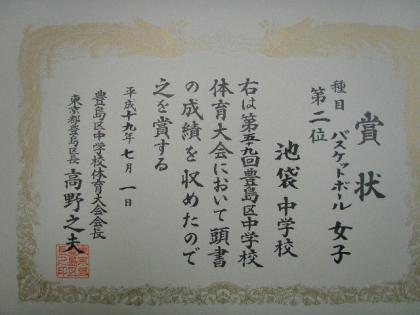 賞状
種目 バスケットボール 女子
第二位
池袋中学校
右は第五十九回豊島区中学校
体育大会において頭書
の成績を収めたので
之を賞する
平成十九年七月一日
豊島区中学校体育大会会長
東京都豊島区長 高野之夫